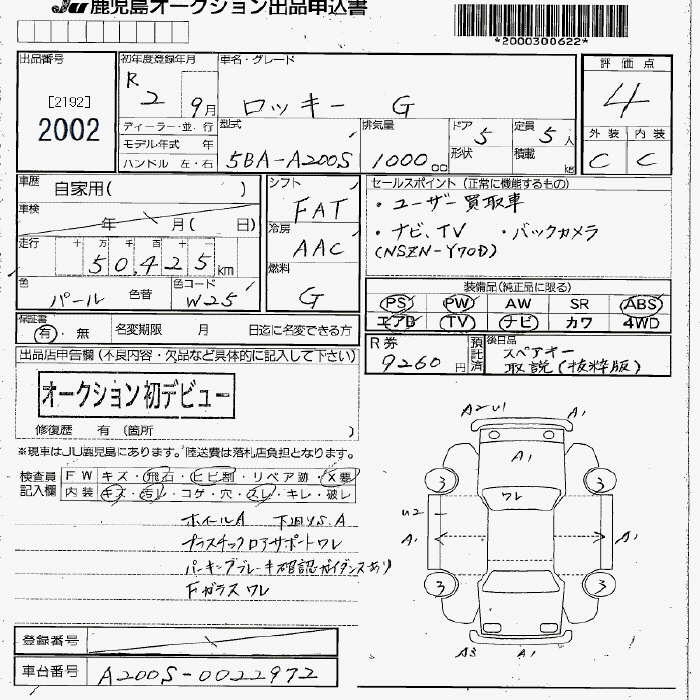 JU鹿児島オークション出品申込書
*2000300622*
出品番号
[2192]
2002
初年度登録年月
R 2 9月
車名・グレード
ロッキー G
評価点
4
外装 内装
C C
ディーラー・並・行
モデル年式 年
ハンドル 左・右
型式
5BA-A200S
排気量
1000 cc
ドア 5
形状
定員 5 人
積載 kg
車歴 自家用( )
車検 年 月( 日)
走行 十 万 千 百 十 一
50,425 km
色 パール 色替
色コード W25
シフト
FAT
冷房
AAC
燃料
G
セールスポイント(正常に機能するもの)
・ユーザー買取車
・ナビ、TV ・バックカメラ
(NSZN-Y70D)
装備品(純正品に限る)
PS PW AW SR ABS
エアB TV ナビ カワ 4WD
R券
9260円
預託済
後日品
スペアキー
取説(抜粋版)
保証書
有・無 名変期限 月 日迄に名変できる方
出品店申告欄(不良内容・欠品など具体的に記入して下さい)
オークション初デビュー
修復歴 有(箇所 )
※現車はJU鹿児島にあります。陸送費は落札店負担となります。
検査員
記入欄
FW キズ・飛石・ヒビ割・リペア跡・X要
内装 キズ・汚レ・コゲ・穴・スレ・キレ・破レ
ホイールA 下回りS.A
プラスチックロアサポートワレ
パーキングブレーキ確認ガイダンスあり
Fガラスワレ
A2 U1 A1
A1
ワレ
3 3
U2
A1 A1
3 3
A3 A1
登録番号
車台番号 A200S-0022972